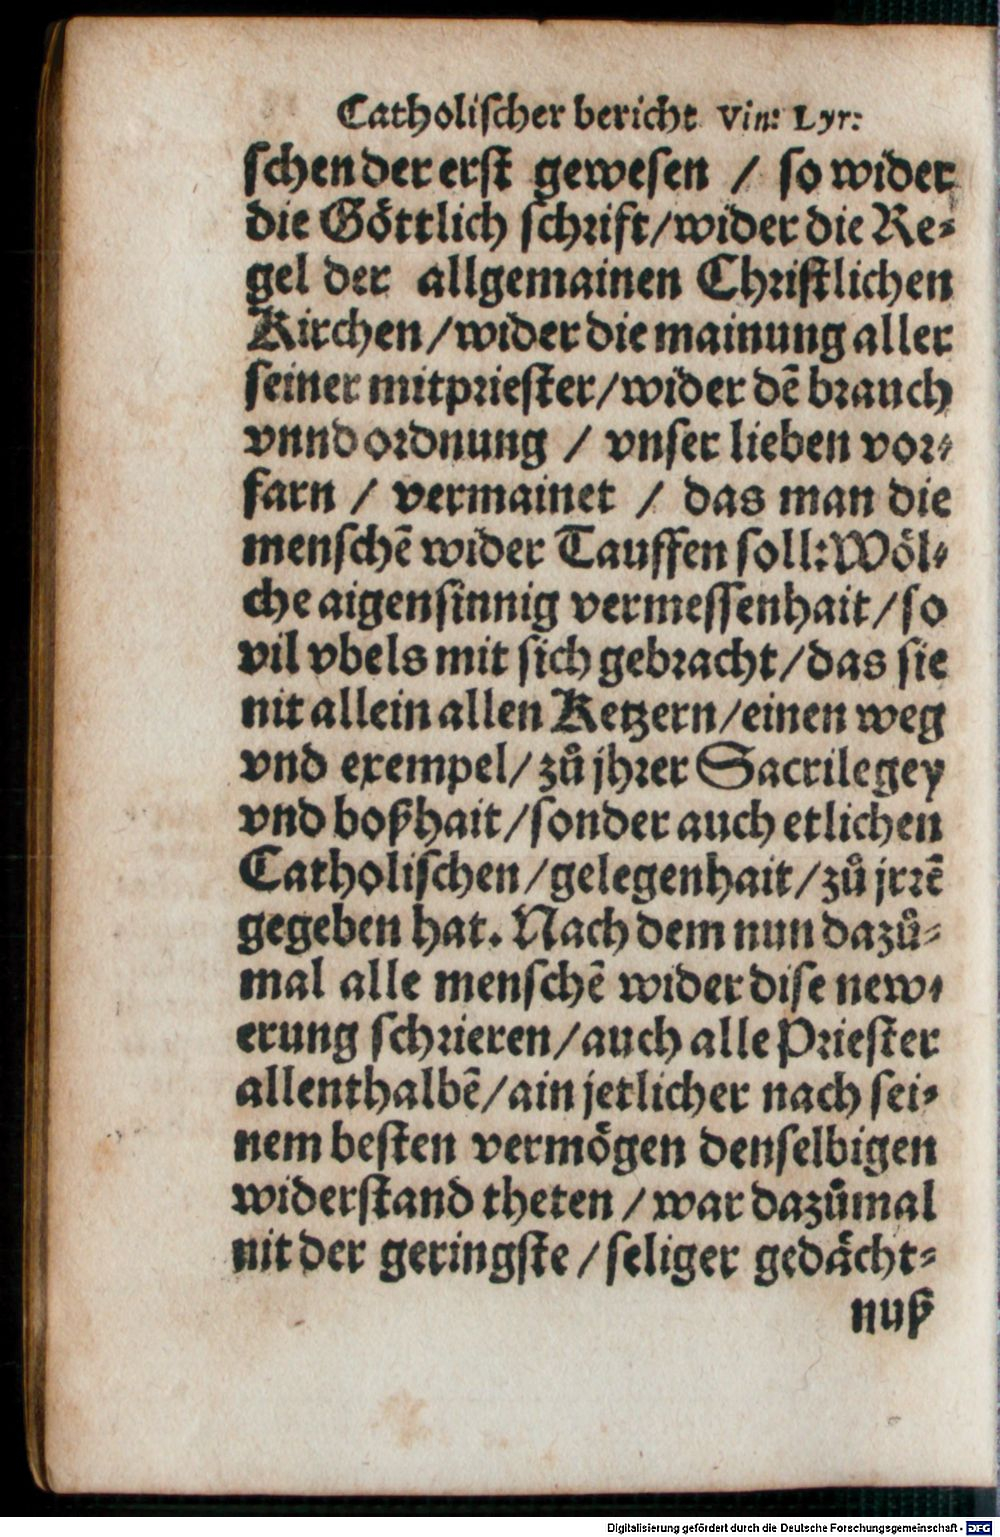 Catholiſcher bericht Vin: Lyr:
ſchen der erſt geweſen / ſo wider
die Göttlich ſchrift/wider die Re⸗
gel der allgemainen Chriſtlichen
Kirchen/wider die mainung aller
ſeiner mitprieſter/wider dē brauch
vnnd ordnung / vnſer lieben vor⸗
farn / vermainet / das man die
menſchē wider Tauffen ſoll: Wöl⸗
che aigenſinnig vermeſſenhait/ſo
vil vbels mit ſich gebracht/das ſie
nit allein allen Ketzern/einen weg
vnd exempel/zů jhrer Sacrilegey
vnd boßhait/ſonder auch etlichen
Catholiſchen/gelegenhait/zů jrrē
gegeben hat. Nach dem nun dazů⸗
mal alle menſchē wider diſe new⸗
erung ſchrieren/auch alle Prieſter
allenthalbē/ain jetlicher nach ſei⸗
nem beſten vermögen denſelbigen
widerſtand theten / war dazůmal
nit der geringſte / ſeliger gedächt⸗
nuß
Digitalisierung gefördert durch die Deutsche Forschungsgemeinschaft - DFG